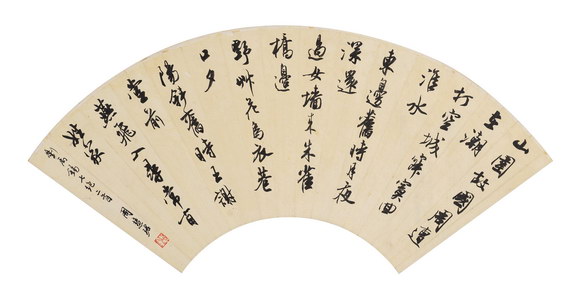 山圍故國周遭
在潮
打空城寂寞回
淮水
東邊舊時月夜
深還
過女墻來朱雀
橋邊
野艸花烏衣巷
口夕
陽斜舊時王謝
堂前
燕飛入尋常百
姓家
劉禹錫七絕二首